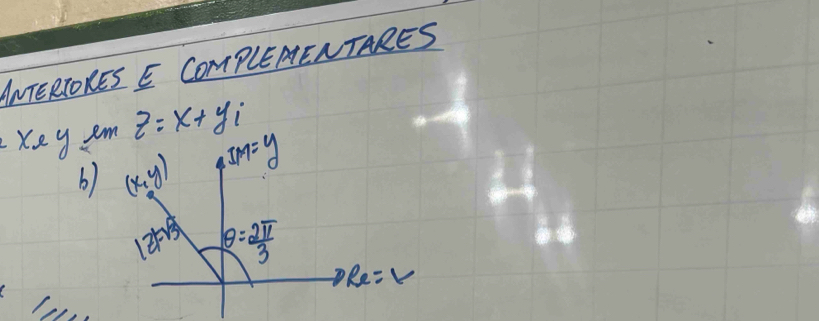 ANTERIORES E COMPLEMENTARES
x e y em Z = x + yi
b) (x,y) IM = y
|Z|=√3 θ = 2π/3
Re =